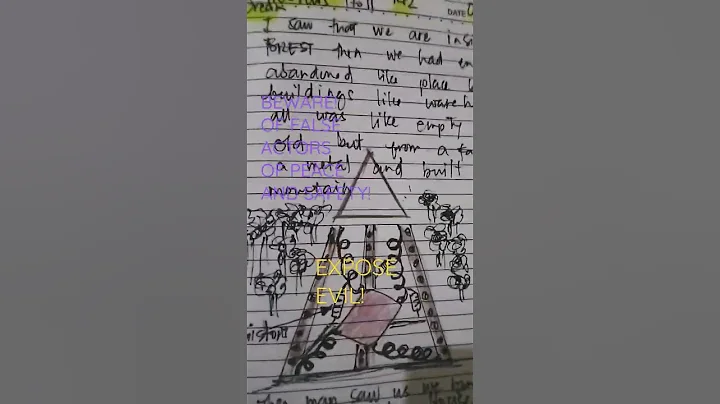 DATE
I saw that we are insi
FOREST then we had en
abandoned like place
buildings like wareh
all was like empty
old but from a fa
a metal and built
mountain !
BEWARE!
OF FALSE
ACTORS
OF PEACE
AND SAFETY!
EXPOSE
EVIL!
man saw us we